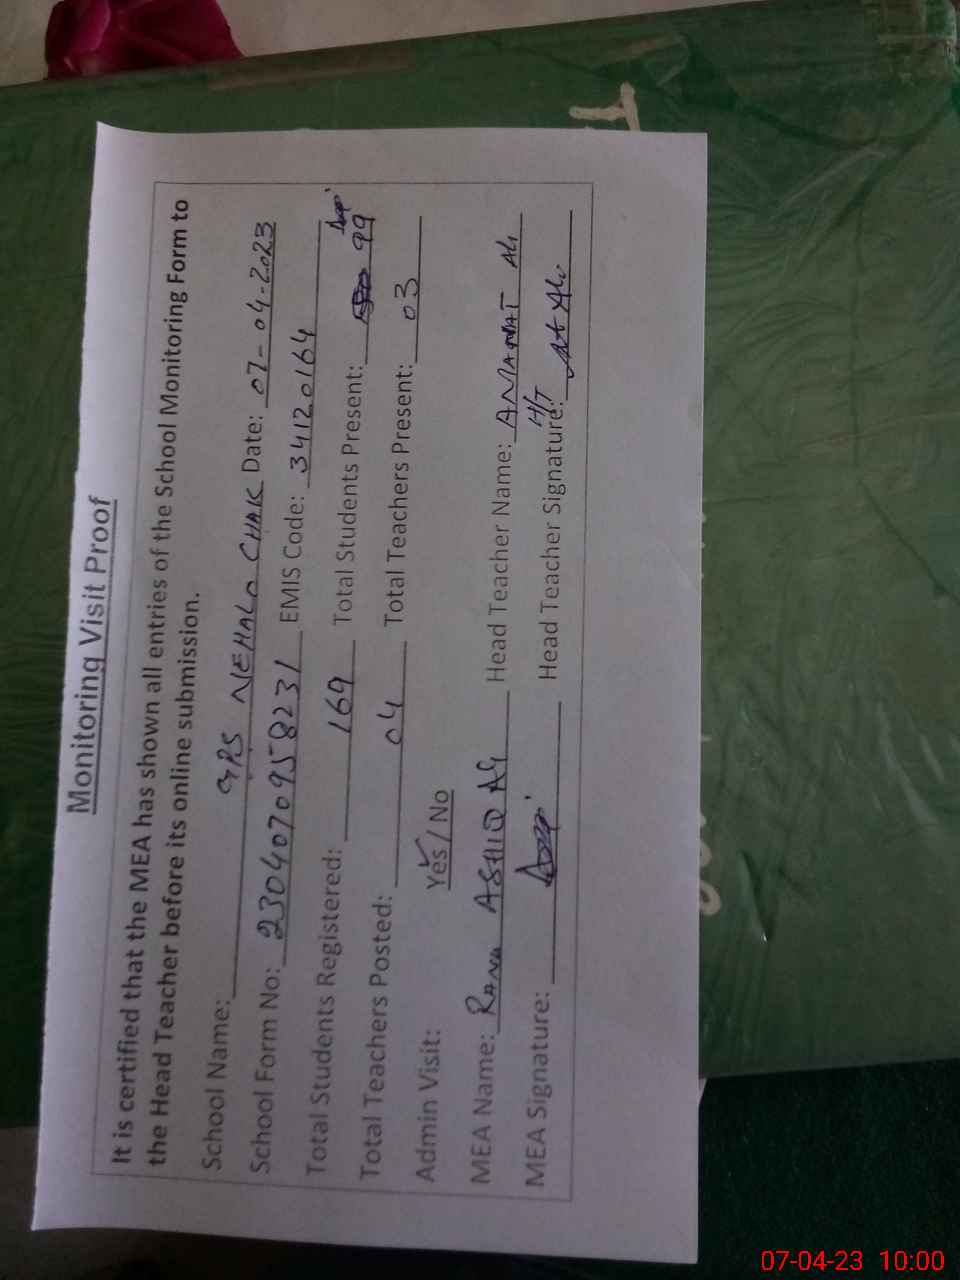 Monitoring Visit Proof
It is certified that the MEA has shown all entries of the School Monitoring Form to
the Head Teacher before its online submission.
School Name: GPS NEHALO CHAK Date: 07-04-2023
School Form No: 2304070958231 EMIS Code: 34120164
Total Students Registered: 169 Total Students Present: 99
Total Teachers Posted: 04 Total Teachers Present: 03
Admin Visit: Yes / No
MEA Name: RANA ASHIQ Ali Head Teacher Name: AMANAT Ali
H/T
MEA Signature: Head Teacher Signature:
07-04-23 10:00